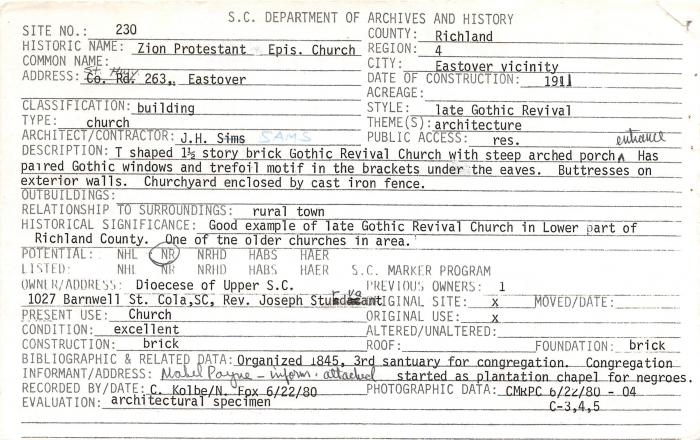 S.C. DEPARTMENT OF ARCHIVES AND HISTORY
SITE NO.: 230 COUNTY: Richland
HISTORIC NAME: Zion Protestant Epis. Church REGION: 4
COMMON NAME: CITY: Eastover vicinity
ADDRESS: Co. Rd. 263,, Eastover DATE OF CONSTRUCTION: 1911
ACREAGE:
CLASSIFICATION: building STYLE: late Gothic Revival
TYPE: church THEME(S): architecture
ARCHITECT/CONTRACTOR: J.H. Sims SAMS PUBLIC ACCESS: res. entrance
DESCRIPTION: T shaped 1½ story brick Gothic Revival Church with steep arched porch ʌ Has
paired Gothic windows and trefoil motif in the brackets under the eaves. Buttresses on
exterior walls. Churchyard enclosed by cast iron fence.
OUTBUILDINGS:
RELATIONSHIP TO SURROUNDINGS: rural town
HISTORICAL SIGNIFICANCE: Good example of late Gothic Revival Church in Lower part of
Richland County. One of the older churches in area.
POTENTIAL: NHL NR NRHD HABS HAER
LISTED: NHL NR NRHD HABS HAER S.C. MARKER PROGRAM
OWNER/ADDRESS: Dioecese of Upper S.C. PREVIOUS OWNERS: 1
1027 Barnwell St. Cola,SC, Rev. Joseph ORIGINAL SITE: x MOVED/DATE:
PRESENT USE: Church ORIGINAL USE: x
CONDITION: excellent ALTERED/UNALTERED:
CONSTRUCTION: brick ROOF: FOUNDATION: brick
BIBLIOGRAPHIC & RELATED DATA: Organized 1845, 3rd santuary for congregation. Congregation
INFORMANT/ADDRESS: Mabel Payne - inform. attached started as plantation chapel for negroes.
RECORDED BY/DATE: C. Kolbe/N. Fox 6/22/80 PHOTOGRAPHIC DATA: CMRPC 6/22/80 - 04
EVALUATION: architectural specimen C-3,4,5